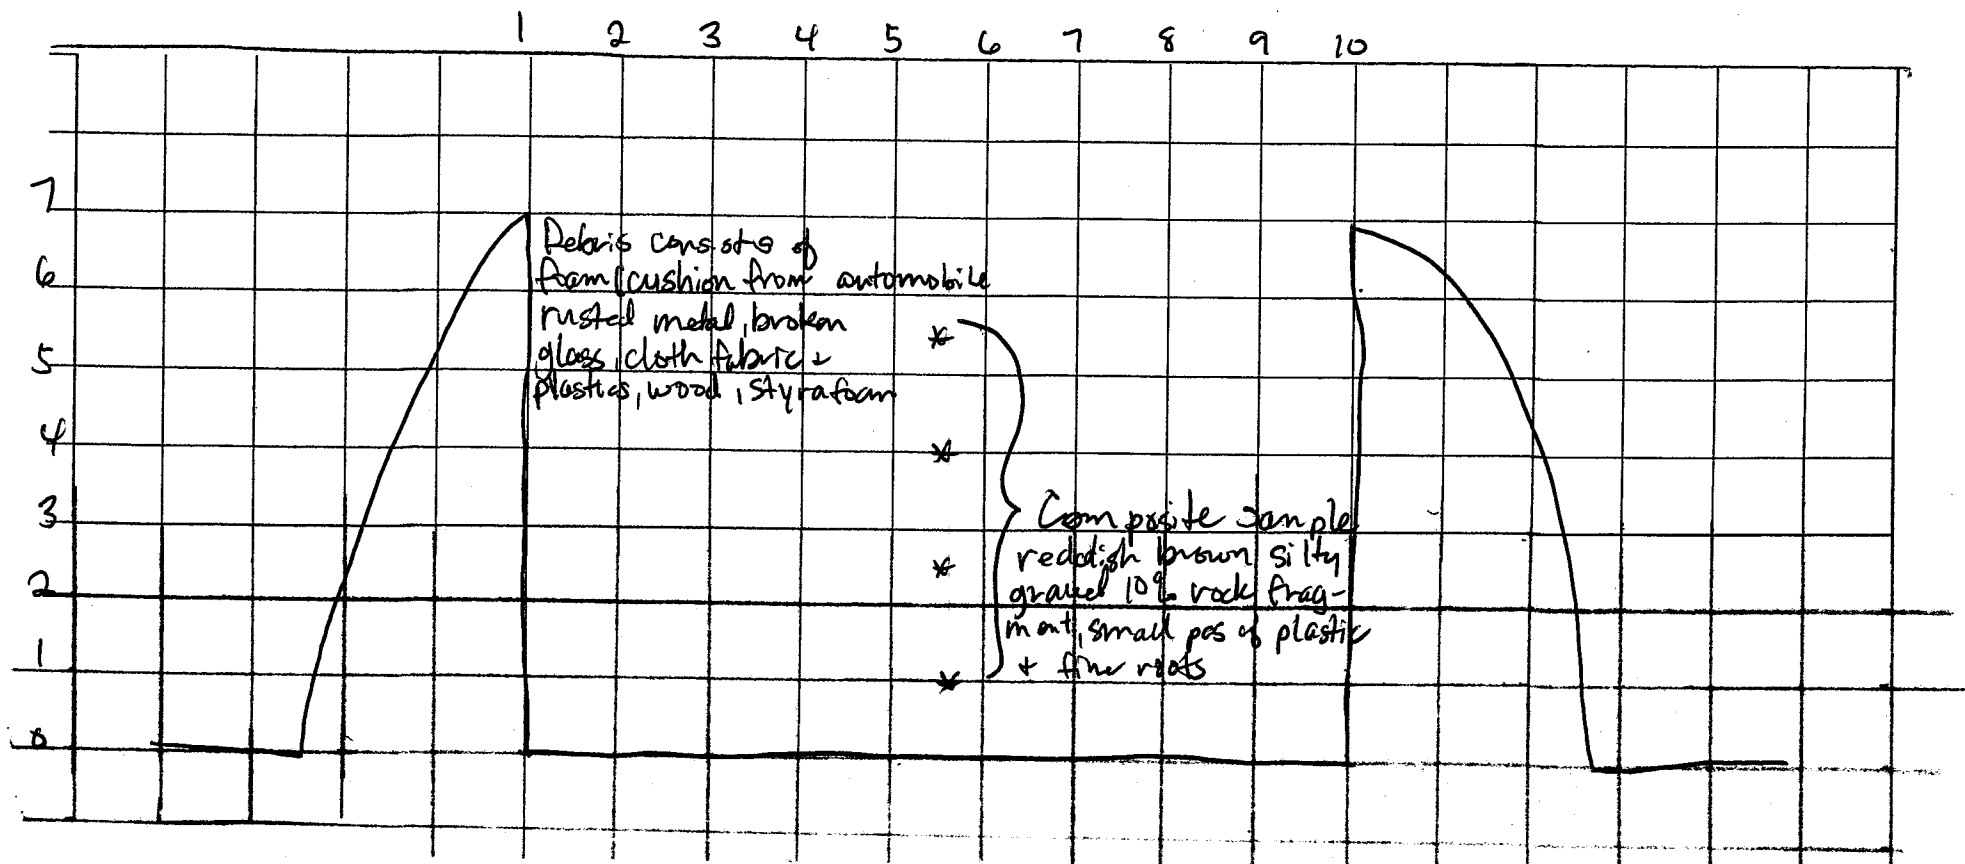 1 2 3 4 5 6 7 8 9 10
7
6
5
4
3
2
1
0
Debris consists of
foam/cushion from automobile
rusted metal, broken
glass, cloth fabric +
plastics, wood, styrafoam
Composite sample
reddish brown silty
gravel 10% rock frag-
ment, small pcs of plastic
+ fine roots